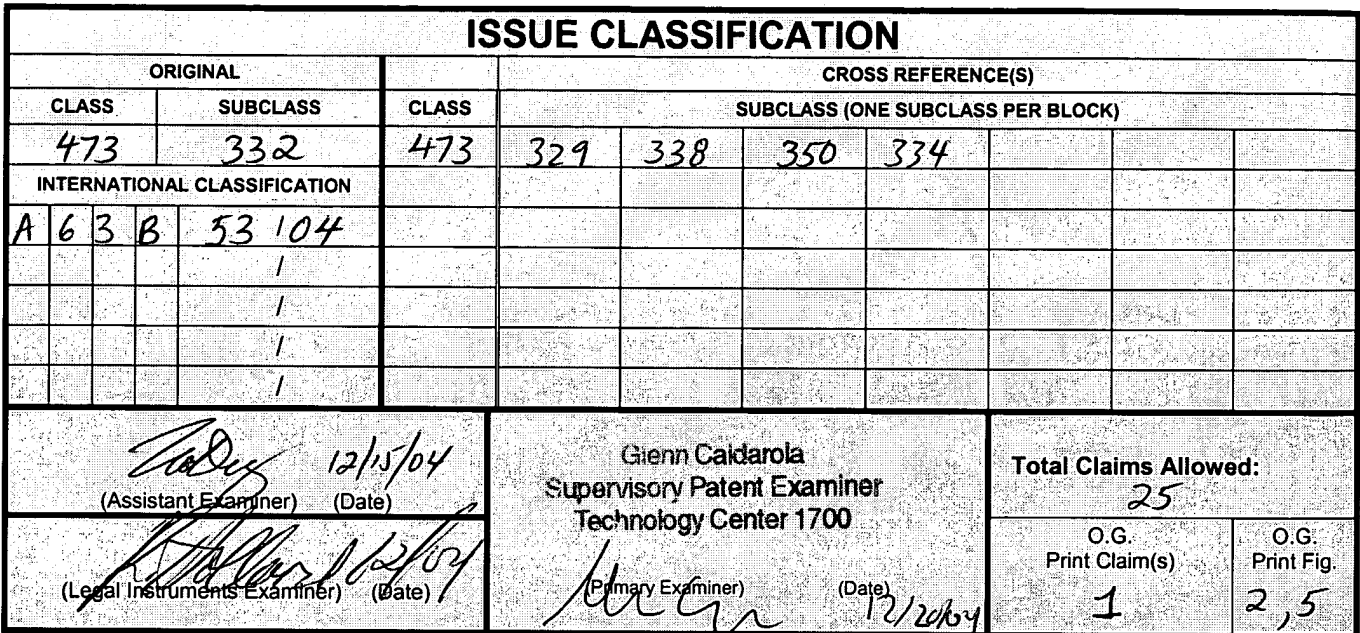 ISSUE CLASSIFICATION
ORIGINAL CROSS REFERENCE(S)
CLASS SUBCLASS CLASS SUBCLASS (ONE SUBCLASS PER BLOCK)
473 332 473 329 338 350 334
INTERNATIONAL CLASSIFICATION
A 63 B 53 / 04
/
/
/
/
12/15/04
(Assistant Examiner) (Date)
(Legal Instruments Examiner) (Date)
Glenn Caldarola
Supervisory Patent Examiner
Technology Center 1700
(Primary Examiner) (Date)
12/20/04
Total Claims Allowed:
25
O.G.
Print Claim(s)
1
O.G.
Print Fig.
2, 5